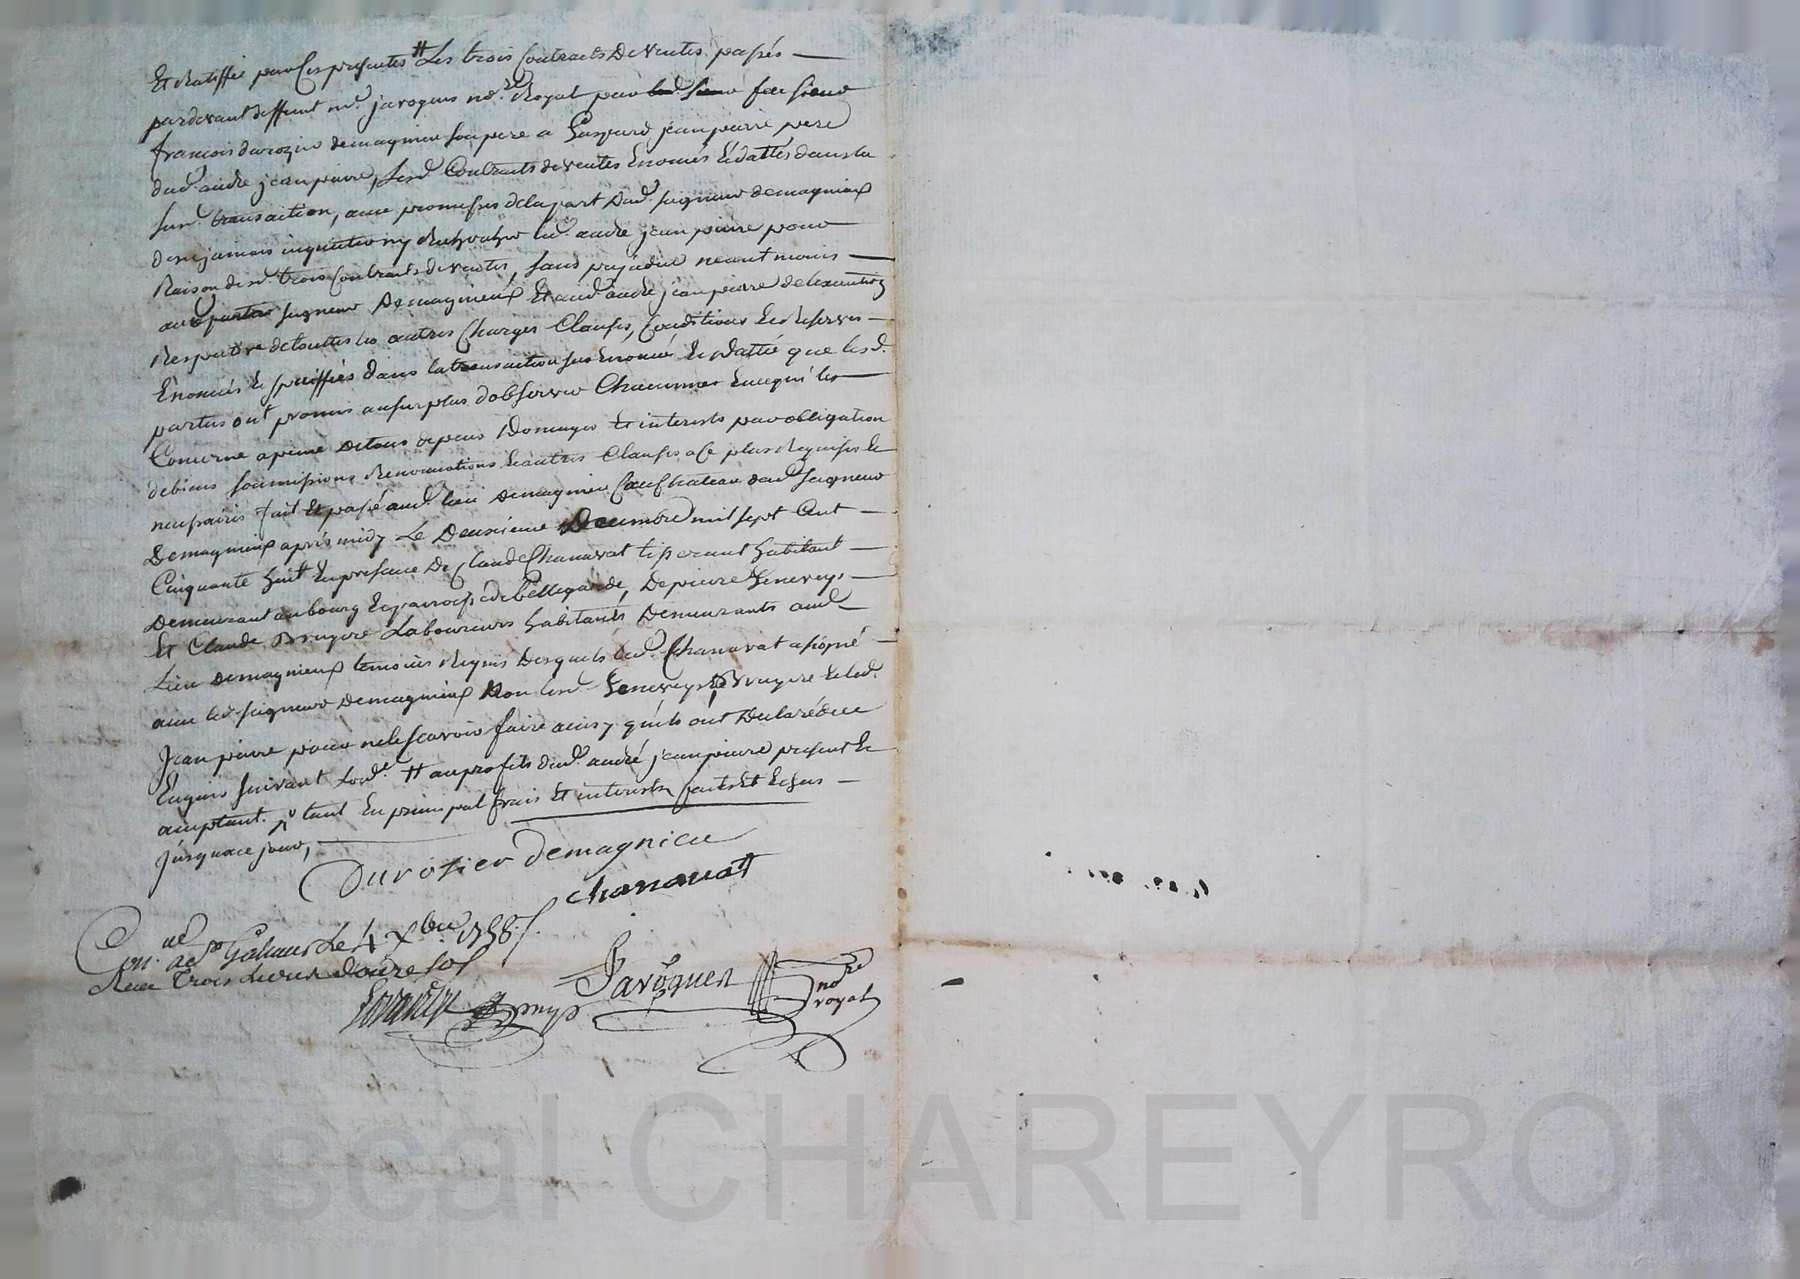 Et Ratiffié par ces presentes # Les trois Contracts De Ventes passés
pardevant deffunt me. javogues nore. Royal par feu sieur
francois durozier demagnieu son pere a Gaspard jean pierre pere
dud. andré jean pierre, lesd. Contracts de ventes Enoncés Et dattés dans la
susd. transaction, avec promesses dela part Dud. seigneur demagnieux
de ne jamais inquietter ny Rechercher led. andré jean pierre pour
Raison desd. trois Contracts de ventes, sans prejudice neant moins
aud. seigneur Demagnieux Et aud. andré jean pierre de lexecution
Respective de touttes les autres Charges Clauses, Conditions Et Reserves
Enoncés Et speciffiés dans la transaction sus Enoncée Et Dattée que lesd.
parties ont promis au surplus d'observer Chacunnes En cequi les
Concerne a peine De tous depens Domages Et interests par obligation
de biens soumissions Renonciations Et autres Clauses a ce plus Requises Et
necessaires fait Et passé aud. lieu Demagnieu Chateau dud. seigneur
Demagnieux apres midy Le Deuxieme Decembre mil sept Cent
Cinquante huit En presence De Claude Chanavat tisserant habitant
Demeurant au bourg Et parroisse de bellegarde, De pierre Geneveys
Et Claude Bruyere Laboureurs habitants Demeurants aud.
Lieu demagnieux temoins Requis Desquels led. Chanavat a signé
avec led. seigneur Demagnieux Non lesd. Geneveys Et Bruyere Et led.
Jean pierre pour ne le scavoir faire ainsy qu'ils ont Declaré de ce
Enquis suivant Lorde. # au profits dud. andré jean pierre present Et
acceptant. tant En principal frais Et interests faits Et Echus
jusqua ce jour,
Durosier demagnieu
Chanauat
Con. le 4 Xbre 1758.
Receu Trois Livres douze sols
Javogues nore royal
Pascal CHAREYRON